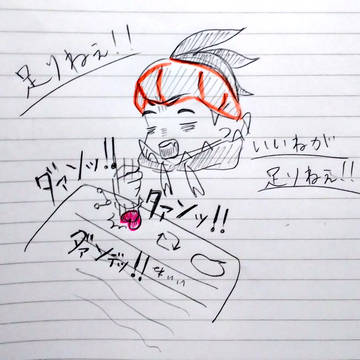 足りねぇ!!
いいねが
足りねぇ!!
ダァンッ!!
ダァンッ!!
ダァンデッ!!